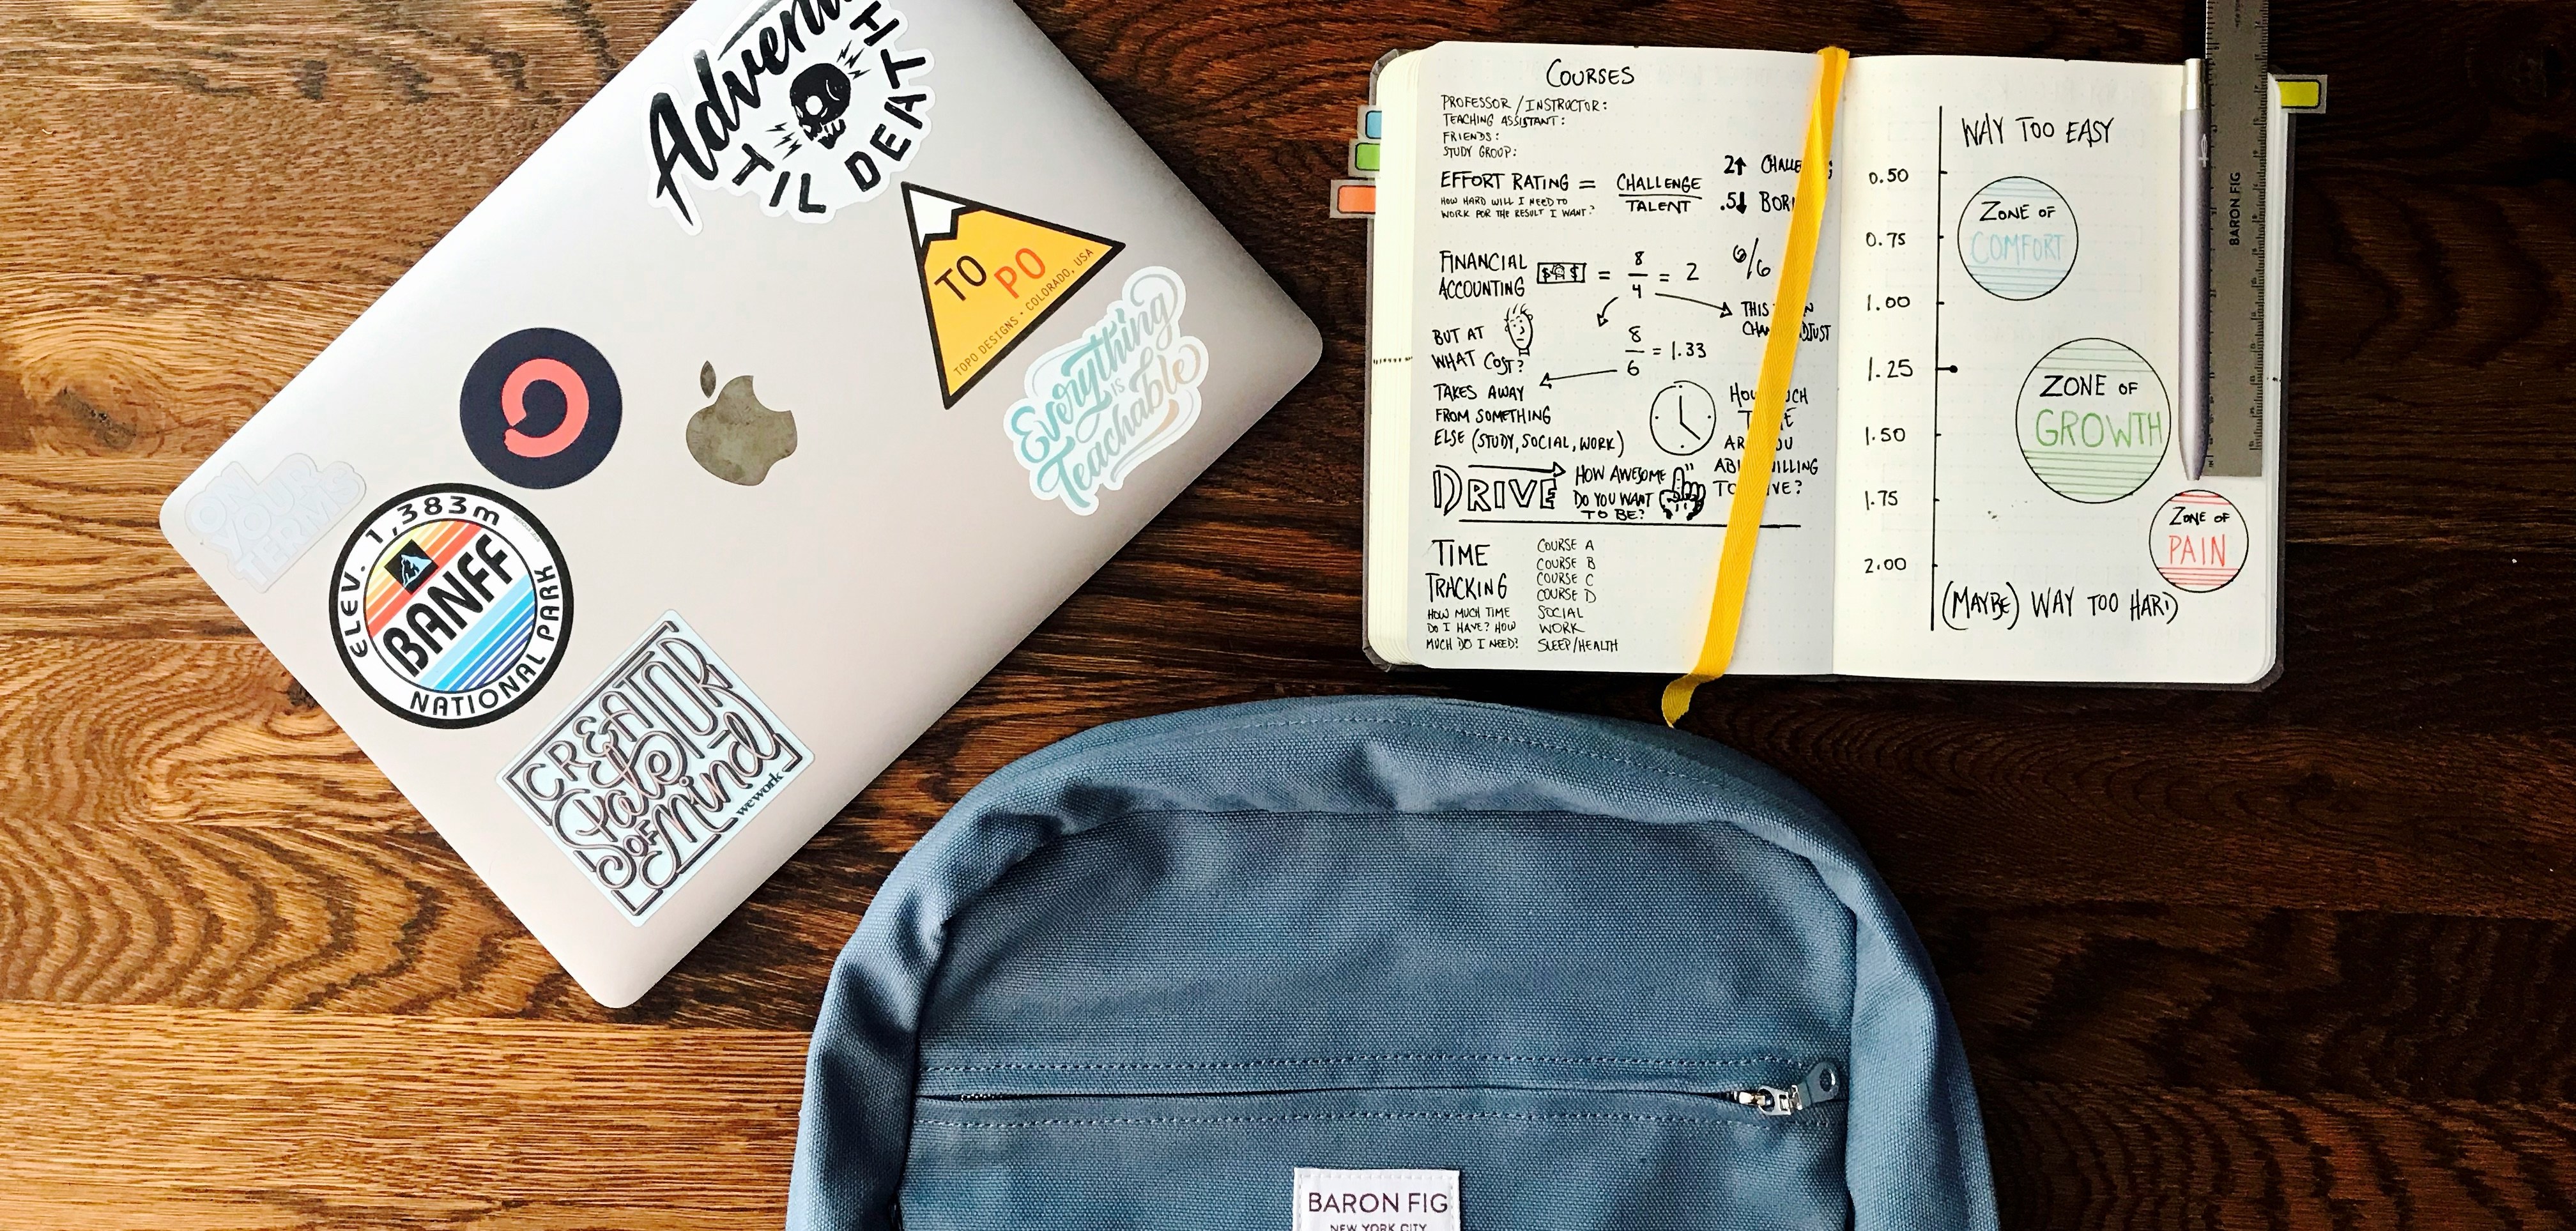 TIL DEATH
TO
PO
TOPO DESIGNS · COLORADO, USA
Everything
IS
Teachable
ON
YOUR
TERMS
ELEV. 1,383m
BANFF
NATIONAL PARK
CREATOR
State
OF
Mind
wework
COURSES
PROFESSOR/INSTRUCTOR:
TEACHING ASSISTANT:
FRIENDS:
STUDY GROUP:
EFFORT RATING = CHALLENGE
TALENT
HOW HARD WILL I NEED TO
WORK FOR THE RESULT I WANT?
2↑
.5↓
FINANCIAL
ACCOUNTING
$ $ = 8/4 = 2
6/6
BUT AT
WHAT COST?
8/6 = 1.33
THIS
TAKES AWAY
FROM SOMETHING
ELSE (STUDY, SOCIAL, WORK)
ARE YOU
DRIVE
HOW AWESOME
DO YOU WANT
TO BE?
TIME
TRACKING
HOW MUCH TIME
DO I HAVE? HOW
MUCH DO I NEED?
COURSE A
COURSE B
COURSE C
COURSE D
SOCIAL
WORK
SLEEP/HEALTH
WAY TOO EASY
0.50
ZONE OF
COMFORT
0.75
1.00
1.25
ZONE OF
GROWTH
1.50
1.75
ZONE OF
PAIN
2.00
(MAYBE) WAY TOO HARD
BARON FIG
BARON FIG
NEW YORK CITY